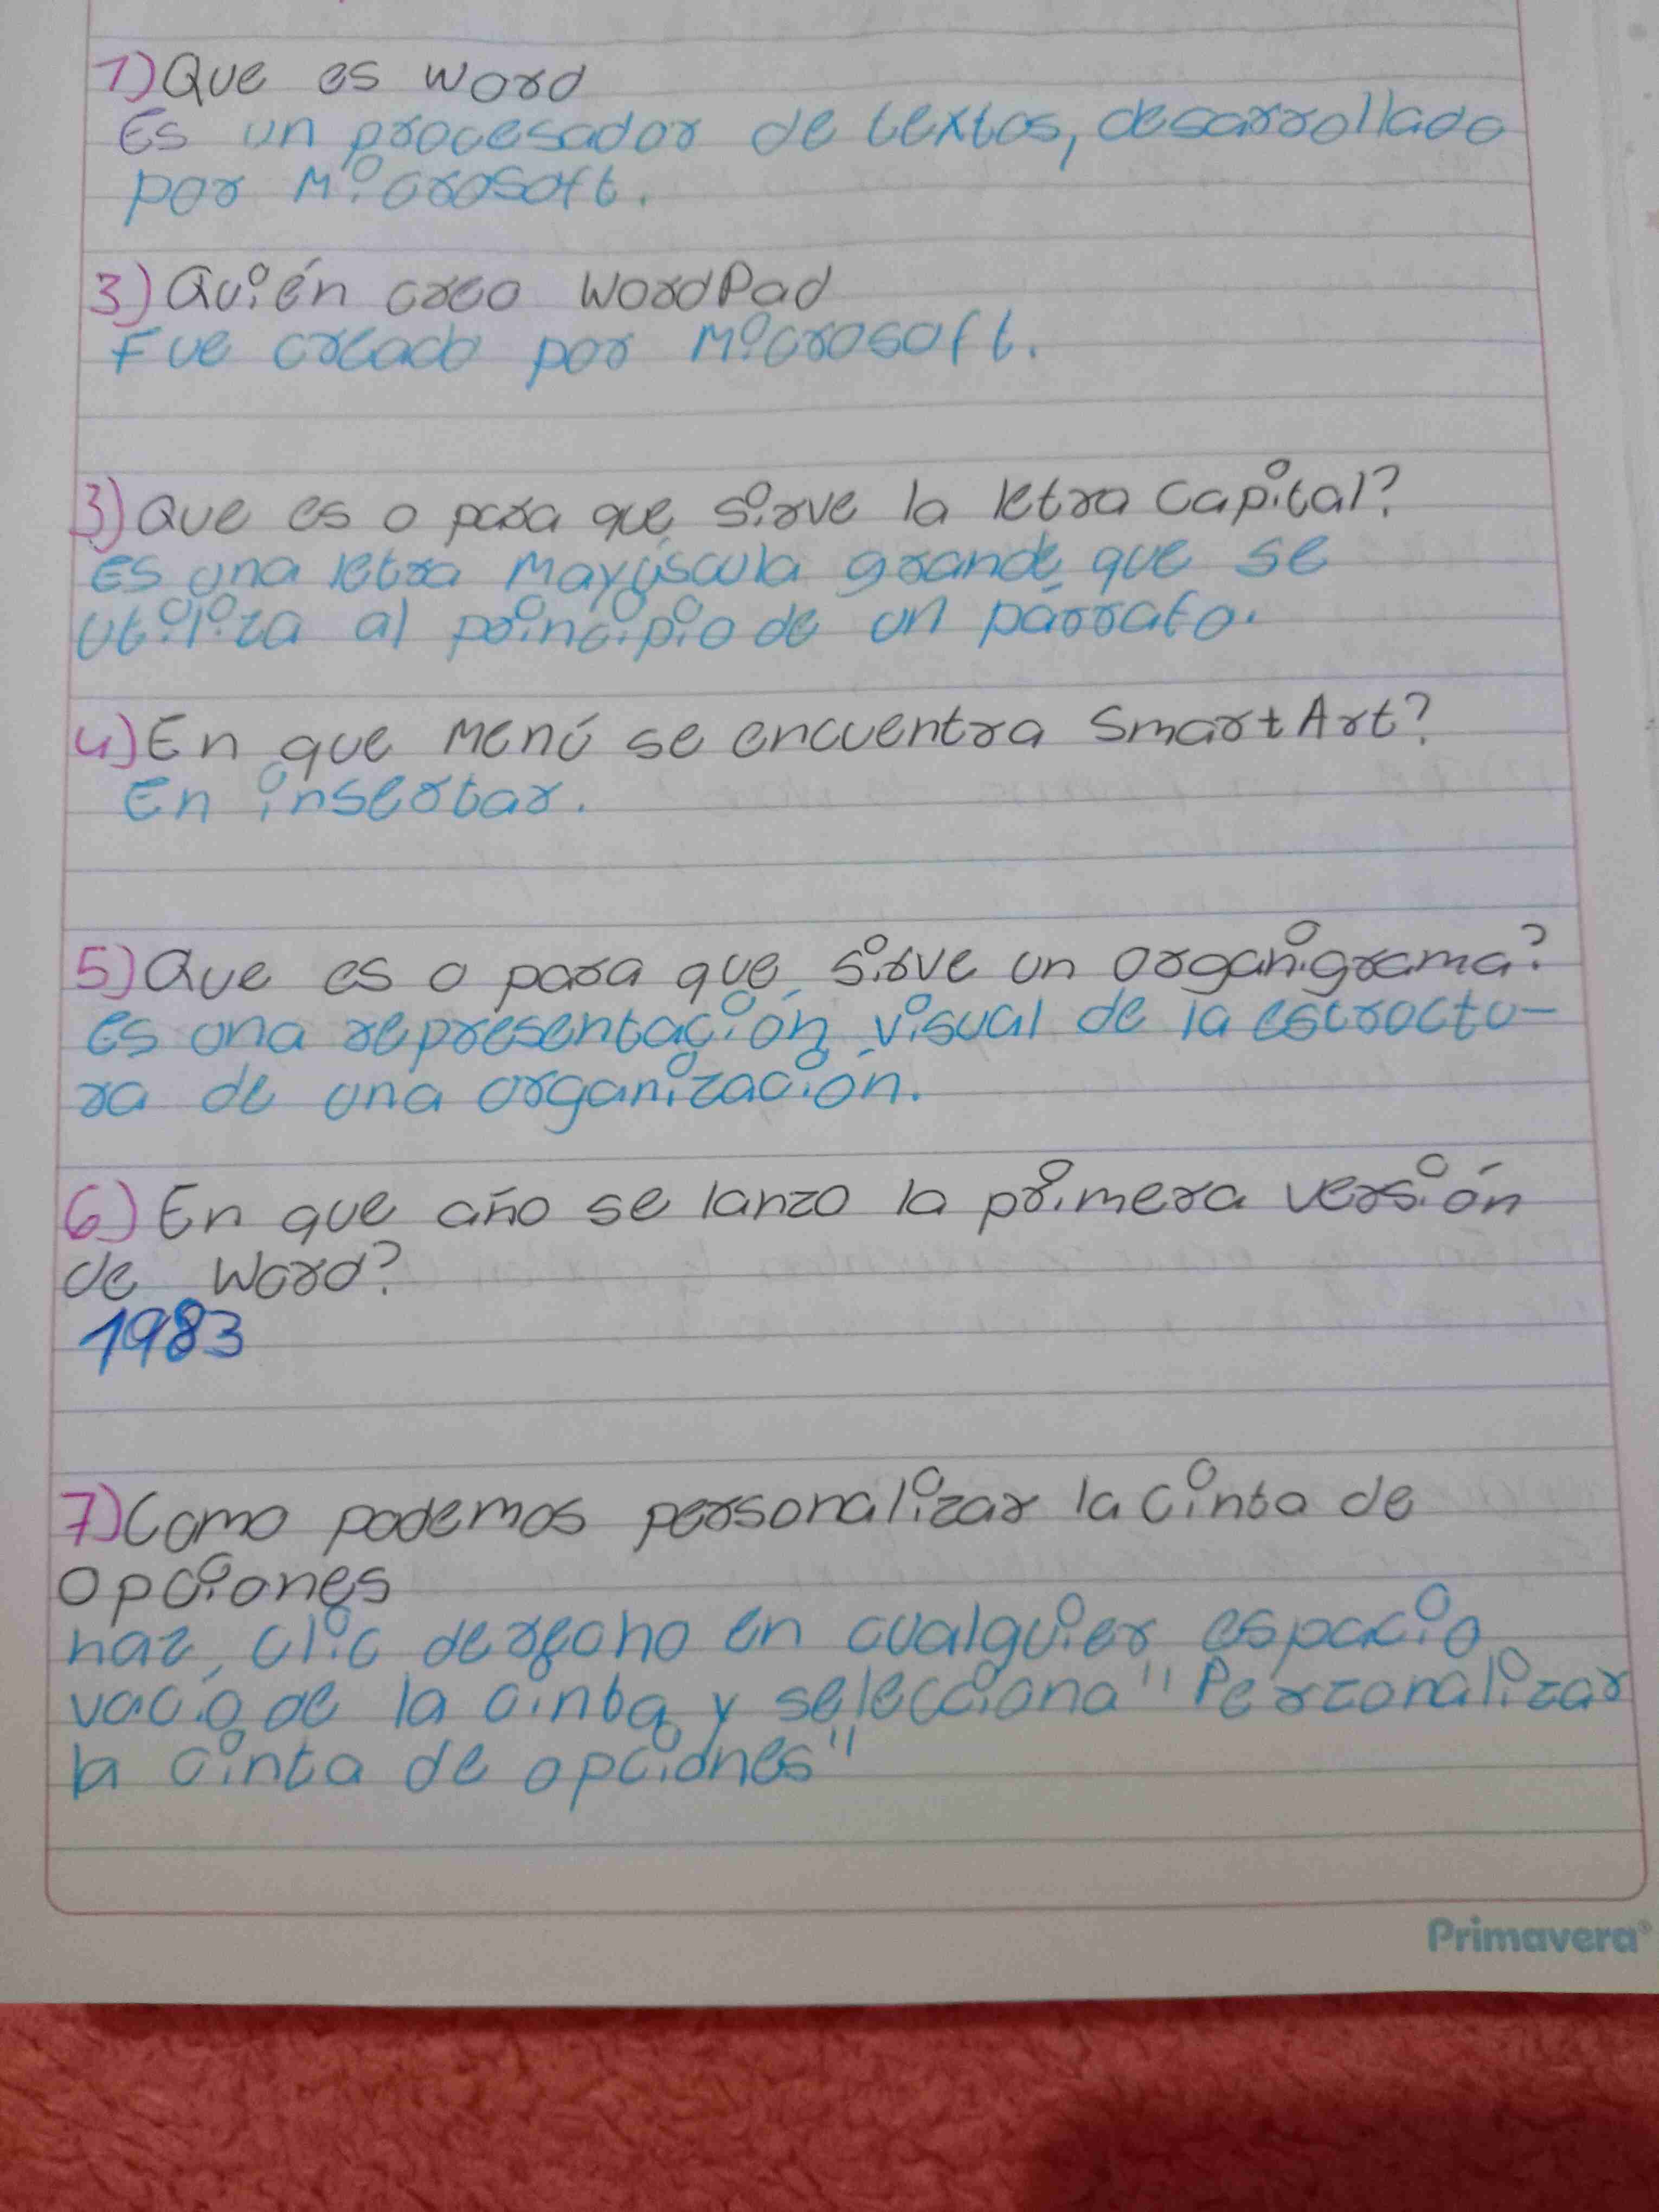 1) Que es word
Es un procesador de textos, desarrollado
por Microsoft.
3) Quién creo WordPad
Fue creado por Microsoft.
3) Que es o para que sirve la letra Capital?
Es una letra Mayúscula grande que se
utiliza al principio de un párrafo.
4) En que Menú se encuentra SmartArt?
En insertar.
5) Que es o para que sirve un organigrama?
es una representación visual de la estructu-
ra de una organización.
6) En que año se lanzo la primera versión
de Word?
1983
7) Como podemos personalizar la cinta de
opciones
haz, clic derecho en cualquier espacio
vacio de la cinta y selecciona "Perzonalizar
la cinta de opciones"
Primavera